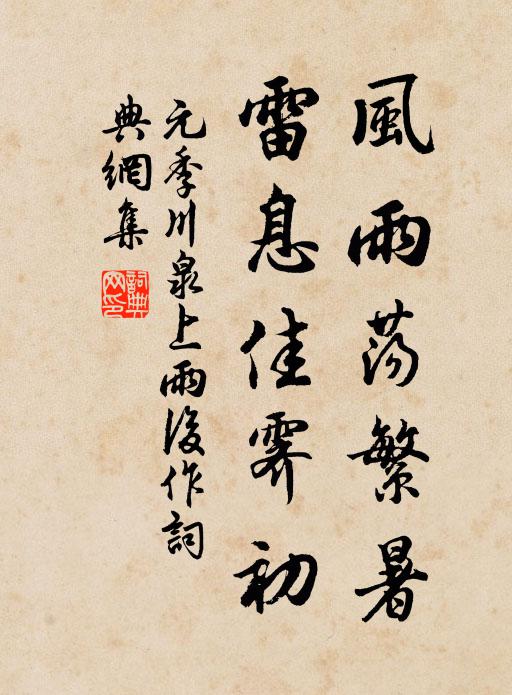 風雨蕩繁暑
雷息佳霽初
元季川泉上雨後作詞
典網集
詞典
网印